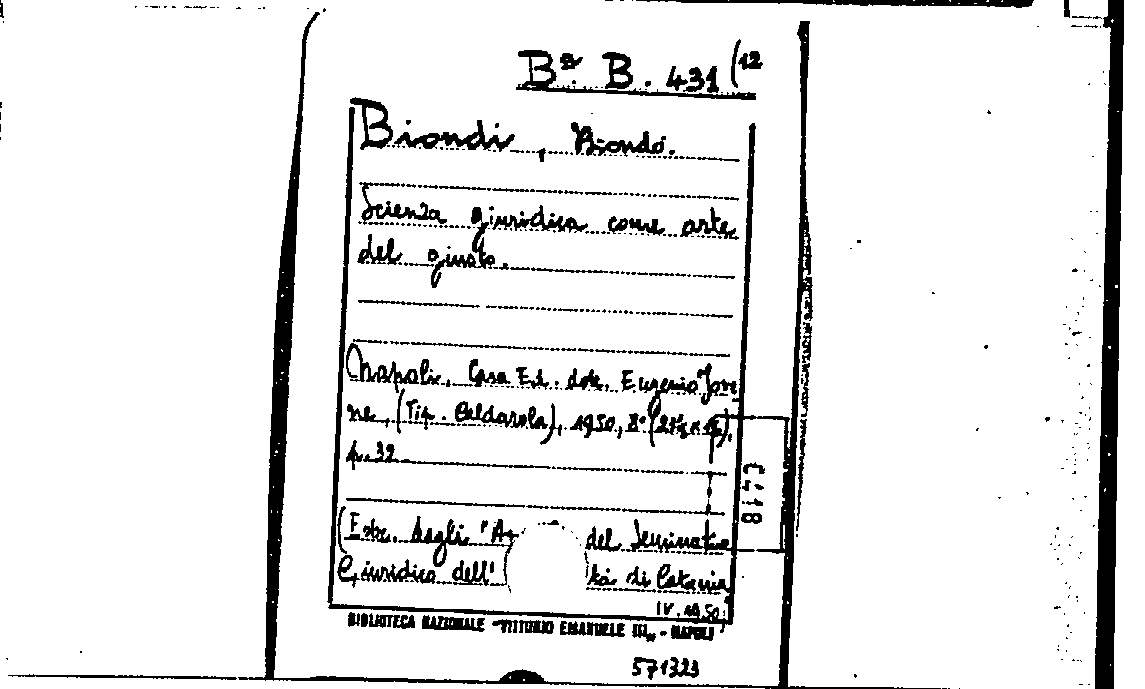 Bª. B. 431 (12
Biondi, Biondo.
Scienza giuridica come arte
del giusto.
Napoli, Casa Ed. dott. Eugenio Jove
ne, (Tip. Caldarola), 1950, 8°
p. 32
(Estr. dagli "A del Seminario
Giuridico dell' tà di Catania
IV. 1950;
BIBLIOTECA NAZIONALE "VITTORIO EMANUELE III„ - NAPOLI
571323